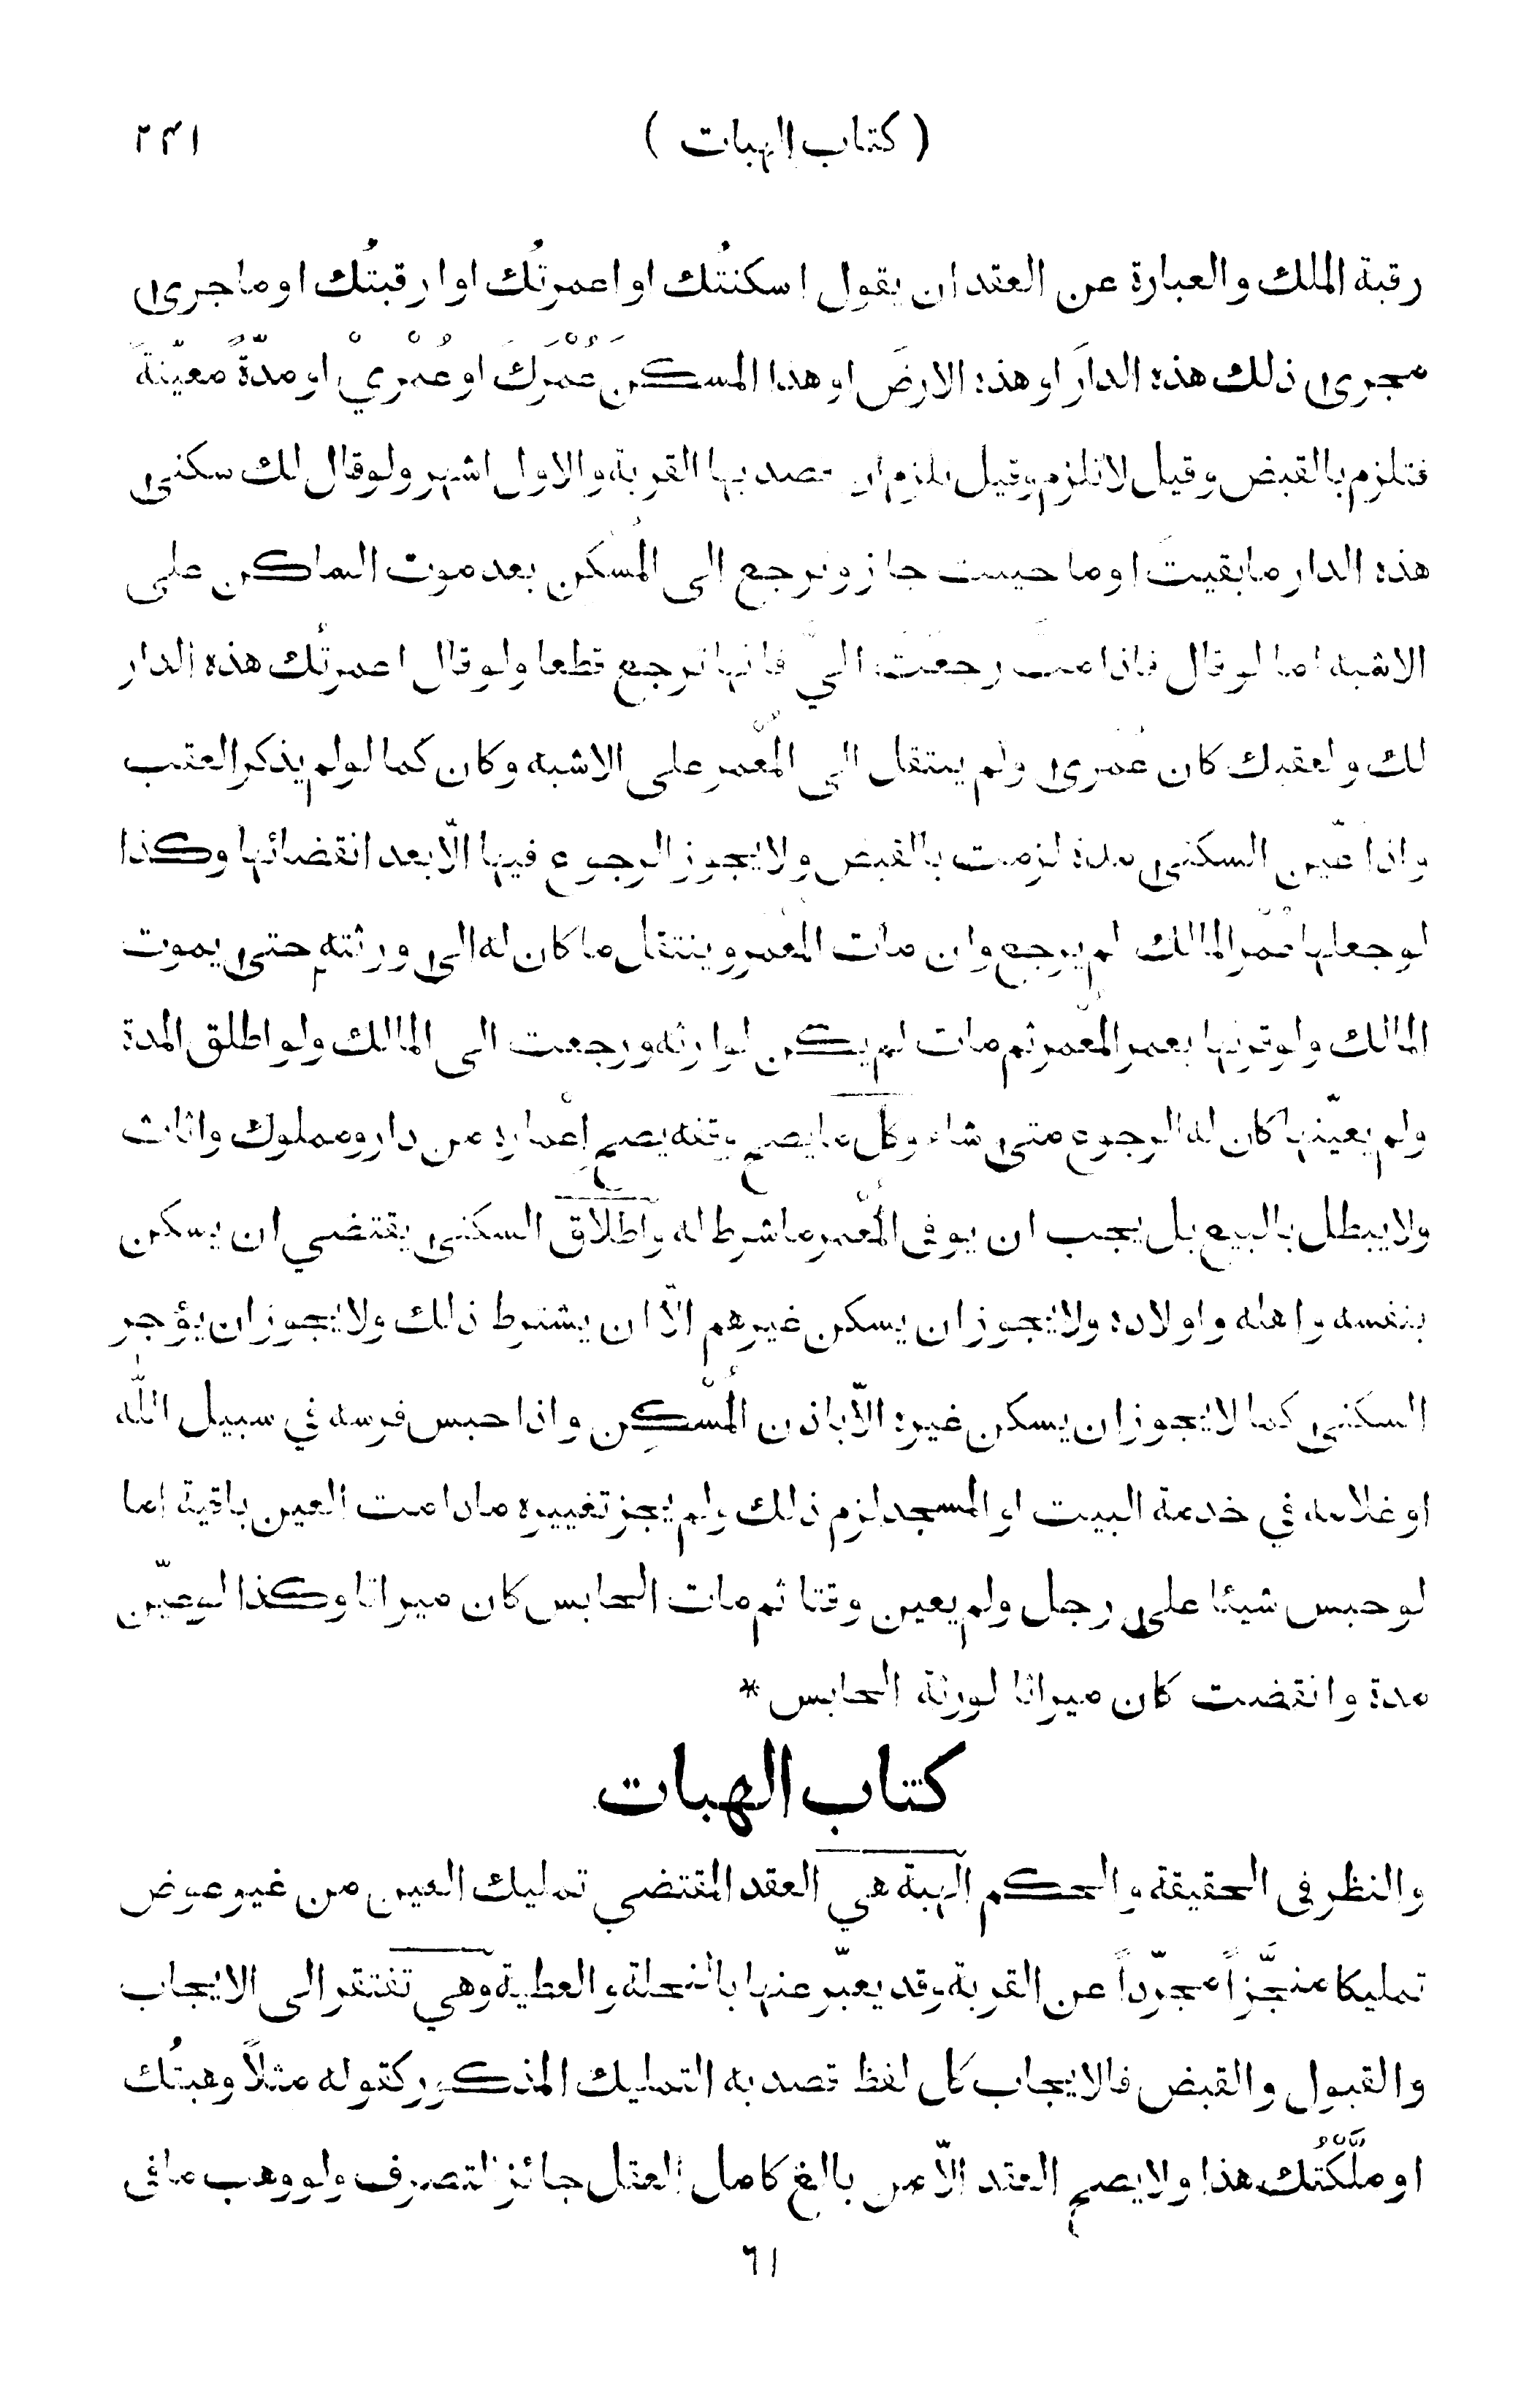 ( كتاب الهبات ) ٢٤١
رقبة الملك والعبارة عن العقد ان يقول اسكنتُك او اعمرتُك او ارقبتُك او ما جرى
مجرى ذلك هذه الدارَ او هذه الارضَ او هذا المسكن عُمْرَكَ او عُمْرِيْ او مدّةً معيّنةً
فتلزم بالقبض وقيل لا تلزم وقيل يلزم ان قصد بها القربة والاول اشهر ولو قال لك سكنى
هذه الدار ما بقيتَ او ما حييت جاز وترجع الى المُسكن بعد موت الساكن على
الاشبه اما لو قال فاذا متّ رجعَتْ اليّ فانها ترجع قطعا ولو قال اعمرتُك هذه الدار
لك ولعقبك كان عُمرى ولم ينتقل الى المُعْمَر على الاشبه وكان كما لو لم يذكر العقب
واذا عيّن السكنى مدة لزمت بالقبض ولا يجوز الرجوع فيها الّا بعد انقضائها وكذا
لو جعلها عُمْرَ المالك لم يرجع وان مات المُعْمَر وينتقل ما كان له الى ورثته حتى يموت
المالك ولو قرنها بعمر المُعْمَر ثم مات لم يكن لوارثه ورجعت الى المالك ولو اطلق المدة
ولم يعيّنها كان له الرجوع متى شاء وكل ما يصح وقفه يصح إعماره من دار ومملوك واثاث
ولا يبطل بالبيع بل يجب ان يوفى المُعْمَر ما شرط له واطلاق السكنى يقتضي ان يسكن
بنفسه واهله واولاده ولا يجوز ان يسكن غيرهم الّا ان يشترط ذلك ولا يجوز ان يؤجر
السكنى كما لا يجوز ان يسكن غيره الّا باذن المُسْكِن واذا حبس فرسه في سبيل اللّٰه
او غلامه في خدمة البيت او المسجد لزم ذلك ولم يجز تغييره ما دامت العين باقية اما
لو حبس شيئا على رجل ولم يعين وقتا ثم مات الحابس كان ميراثا وكذا لو عيّن
مدة وانقضت كان ميراثا لورثة الحابس *
كتاب الهبات
والنظر في الحقيقة والحكم الهبة هي العقد المقتضي تمليك العين من غير عوض
تمليكا منجَّزاً مجرّداً عن القربة وقد يعبّر عنها بالنحلة والعطية وهي تفتقر الى الايجاب
والقبول والقبض فالايجاب كل لفظ قصد به التمليك المذكور كقوله مثلاً وهبتُك
او ملَّكْتُك هذا ولا يصح العقد الّا من بالغ كامل العقل جائز التصرف ولو وهب ما في
٦١